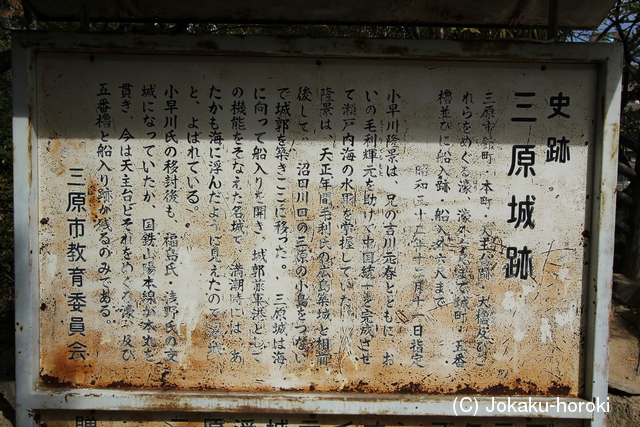 史跡
三原城跡
三原市館町・本町・天主台跡 大櫓及びこ
れらをめぐる濠、濠外六尺まで城町・五番
櫓並びに船入跡・船入外六尺まで
昭和三十二年十二月十一日指定
小早川隆景は、兄の吉川元春とともに、お
いの毛利輝元を助けて中国統一を完成させ
て瀬戸内海の水軍を掌握していた。
隆景は、天正年間毛利氏の広島築城と相前
後して、沼田川口の三原の小島をつない
で城郭を築きここに移った。三原城は海
に向って船入りを開き、城郭兼軍港として
の機能をそなえた名城で 満潮時には、あ
たかも海に浮んだように見えたので浮城
と、よばれている。
小早川氏の移封後も、福島氏・浅野氏の支
城になっていたが、国鉄山陽本線が本丸を
貫き、今は天主台とそれをめぐる濠、及び
五番櫓と船入り跡が残るのみである。
三原市教育委員会
(C) Jokaku-horoki